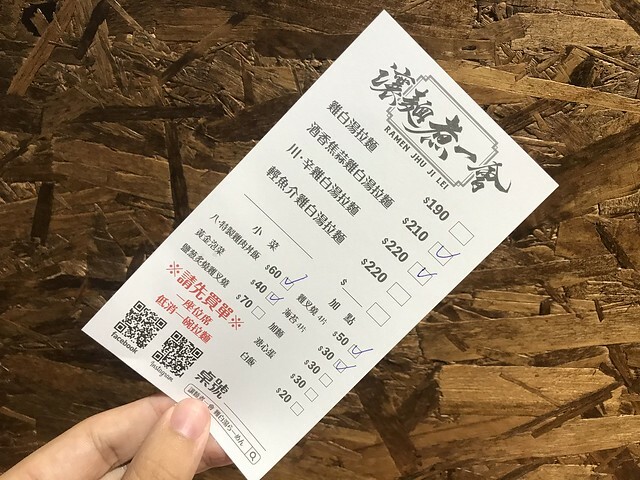 讓麵煮一會
RAMEN JHU JI LEI
雞白湯拉麵 $190
酒香焦蒜雞白湯拉麵 $210
川·辛雞白湯拉麵 $220
輕魚介雞白湯拉麵 $220
$
小菜
八·特製雞肉丼飯 $60
黃金泡菜 $40
鹽蔥炙燒雞叉燒 $70
加點
雞叉燒 4片 $50
海苔 4片 $30
加麵 $30
溏心蛋 $30
白飯 $20
※請先買單※
低消一座位/低
一碗拉麵
facebook
Instagram
桌號
讓麵煮一會 雞白湯らーめん